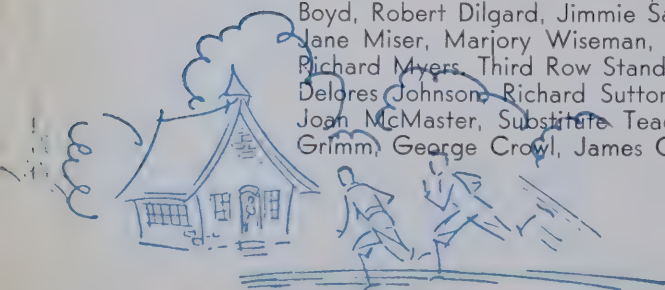 Boyd, Robert Dilgard, Jimmie
Jane Miser, Marjory Wiseman,
Richard Myers, Third Row Stand
Delores Johnson, Richard Sutton
Joan McMaster, Substitute Tea
Grimm, George Crowl, James